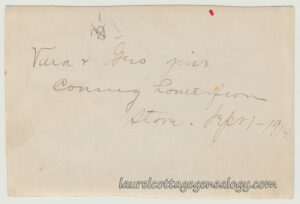 Vera & Geo
Coming home from
Store. Sept 1 - 19
laurelcottagegenealogy.com